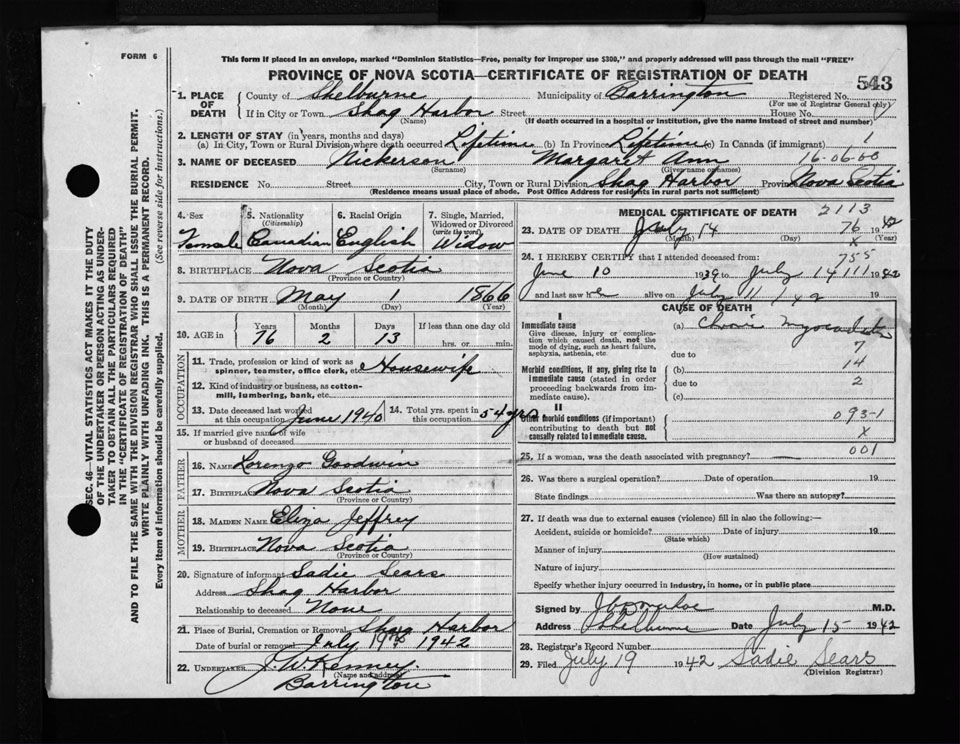 FORM 6
This form if placed in an envelope, marked "Dominion Statistics—Free, penalty for improper use $300," and properly addressed will pass through the mail "FREE"
PROVINCE OF NOVA SCOTIA—CERTIFICATE OF REGISTRATION OF DEATH
543
SEC. 46—VITAL STATISTICS ACT MAKES IT THE DUTY
OF THE UNDERTAKER OR PERSON ACTING AS UNDER-
TAKER TO OBTAIN ALL THE PARTICULARS REQUIRED
IN THE "CERTIFICATE OF REGISTRATION OF DEATH"
AND TO FILE THE SAME WITH THE DIVISION REGISTRAR WHO SHALL ISSUE THE BURIAL PERMIT.
WRITE PLAINLY WITH UNFADING INK. THIS IS A PERMANENT RECORD.
Every item of information should be carefully supplied. (See reverse side for instructions.)
1. PLACE OF DEATH
County of Shelburne Municipality of Barrington Registered No.
(For use of Registrar General only)
If in City or Town Shag Harbor Street House No.
(Name) (If death occurred in a hospital or institution, give the name instead of street and number)
2. LENGTH OF STAY (in years, months and days)
(a) In City, Town or Rural Division where death occurred Lifetime (b) In Province Lifetime (c) In Canada (if immigrant) 1
3. NAME OF DECEASED Nickerson Margaret Ann 16-06-00
(Surname) (Given name or names)
RESIDENCE No. Street City, Town or Rural Division Shag Harbor Province Nova Scotia
(Residence means usual place of abode. Post Office Address for Residents in rural parts not sufficient)
4. Sex Female
5. Nationality (Citizenship) Canadian
6. Racial Origin English
7. Single, Married, Widowed or Divorced (write the word) Widow
8. BIRTHPLACE Nova Scotia
(Province or Country)
9. DATE OF BIRTH May 1 1866
(Month) (Day) (Year)
10. AGE in Years 76 Months 2 Days 13 If less than one day old hrs. or min.
OCCUPATION
11. Trade, profession or kind of work as spinner, teamster, office clerk, etc. Housewife
12. Kind of industry or business, as cotton-mill, lumbering, bank, etc.
13. Date deceased last worked at this occupation June 1940
14. Total yrs. spent in this occupation 54 yrs
15. If married give name of wife or husband of deceased
FATHER
16. NAME Lorenzo Goodwin
17. BIRTHPLACE Nova Scotia
(Province or Country)
MOTHER
18. MAIDEN NAME Eliza Jeffrey
19. BIRTHPLACE Nova Scotia
(Province or Country)
20. Signature of informant Sadie Sears
Address Shag Harbor
Relationship to deceased None
21. Place of Burial, Cremation or Removal Shag Harbor
Date of burial or removal July 19th 1942
22. UNDERTAKER J. W. Kenney.
(Name and address)
Barrington
MEDICAL CERTIFICATE OF DEATH 2113
23. DATE OF DEATH July 14 76 1942
(Month) (Day) (Year)
x
24. I HEREBY CERTIFY that I attended deceased from: 755
June 10 1939 to July 14 111 1942
and last saw her alive on July 11 142 19
CAUSE OF DEATH
I
Immediate cause
Give disease, injury or complication which caused death, not the mode of dying, such as heart failure, asphyxia, asthenia, etc.
(a)
7
due to
Morbid conditions, if any, giving rise to immediate cause (stated in order proceeding backwards from immediate cause).
(b) 14
due to 2
(c)
II
Other morbid conditions (if important) contributing to death but not causally related to immediate cause.
093-1
x
25. If a woman, was the death associated with pregnancy? 001
26. Was there a surgical operation? Date of operation 19
State findings Was there an autopsy?
27. If death was due to external causes (violence) fill in also the following:—
Accident, suicide or homicide? Date of injury 19
(State which)
Manner of injury
(How sustained)
Nature of injury
Specify whether injury occurred in industry, in home, or in public place
Signed by M.D.
Address Shelburne Date July 15 1942
28. Registrar's Record Number
29. Filed July 19 1942 Sadie Sears
(Division Registrar)